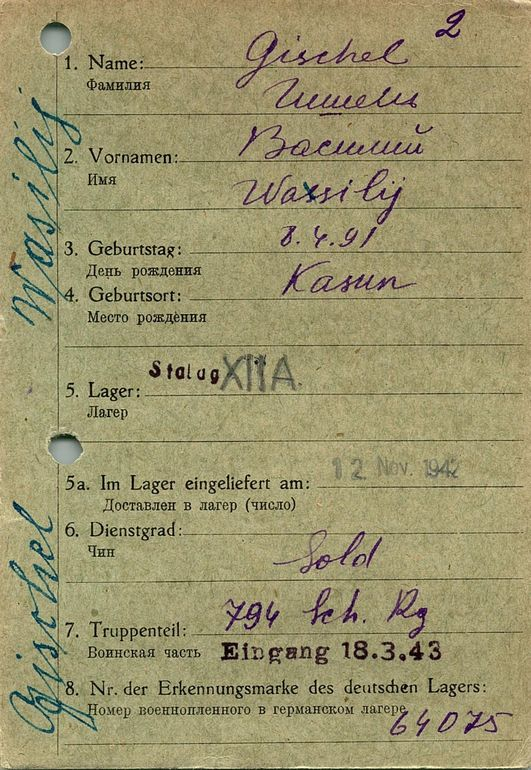 2
1. Name: Gischel
Фамилия Гишель
2. Vornamen: Василий
Имя Wassilij
3. Geburtstag: 8.4.91
День рождения
4. Geburtsort: Kasun
Место рождения
Stalag XIIA.
5. Lager:
Лагерь
5a. Im Lager eingeliefert am: 12 Nov. 1942
Доставлен в лагер (число)
6. Dienstgrad:
Чин Sold
7. Truppenteil: 794 Sch. Rg
Воинская часть Eingang 18.3.43
8. Nr. der Erkennungsmarke des deutschen Lagers:
Номер военнопленного в германском лагере 64075
Gischel Wasilij